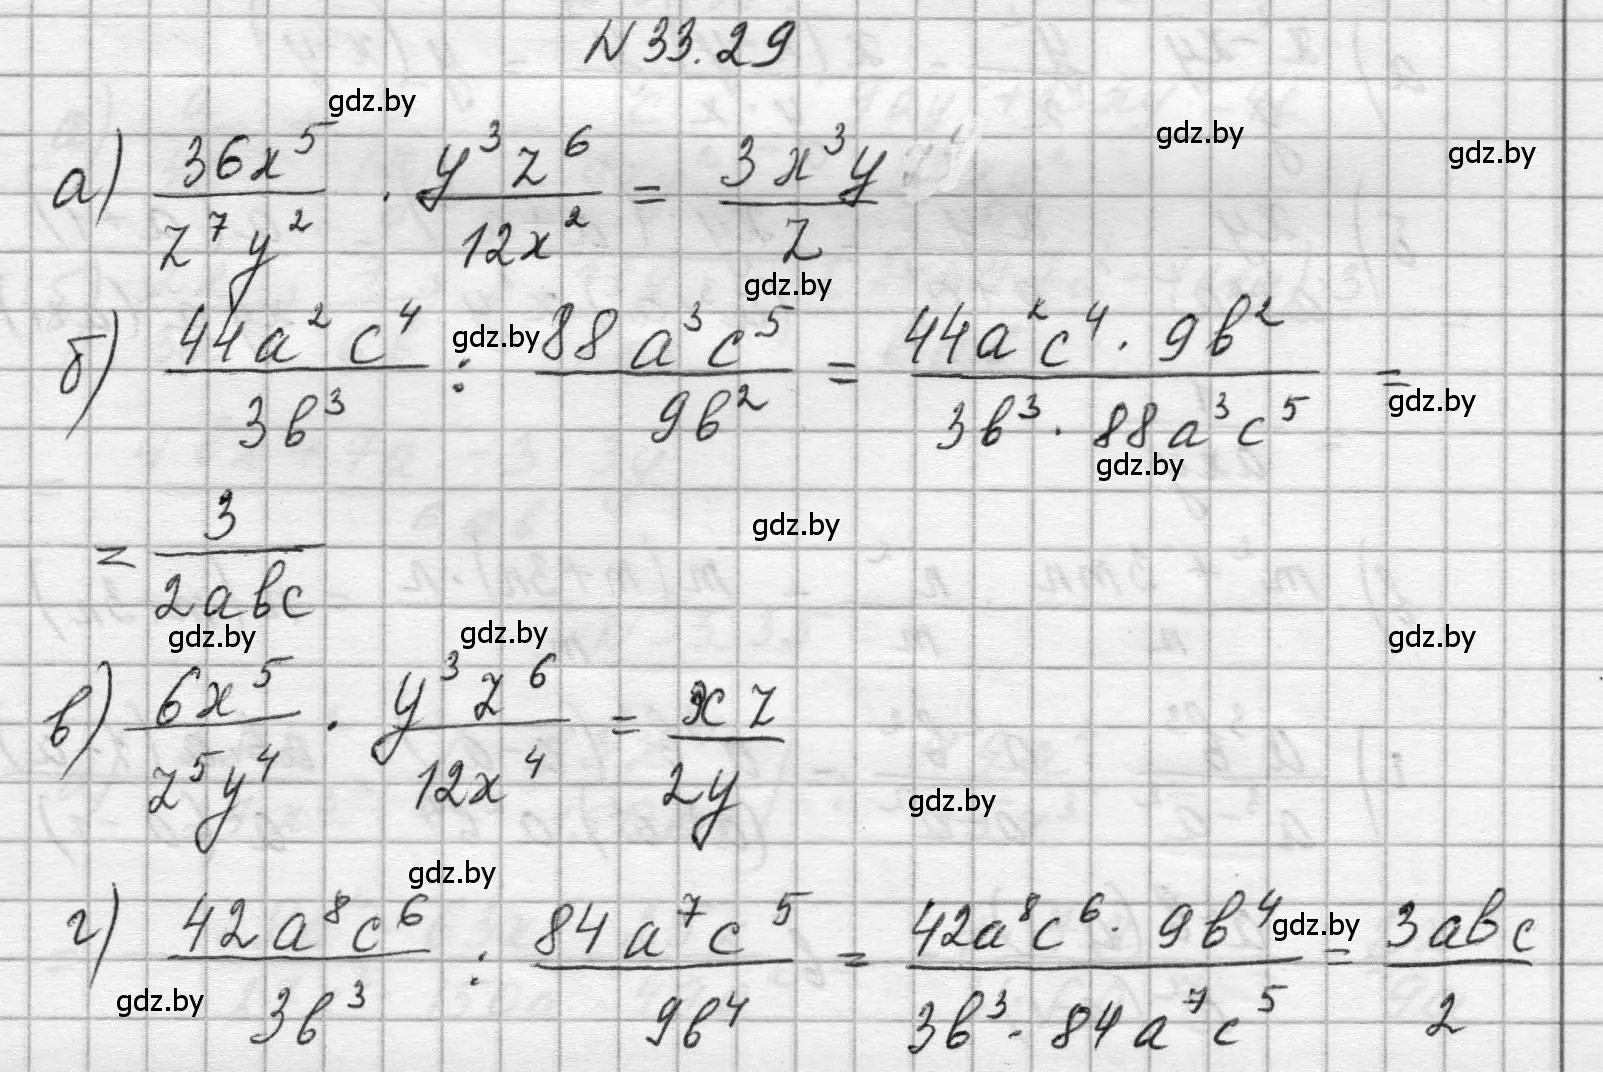 N 33.29
gdz.by
gdz.by
gdz.by
а) 36x⁵/z⁷y² · y³z⁶/12x² = 3x³y/z
gdz.by
б) 44a²c⁴/3b³ : 88a³c⁵/9b² = 44a²c⁴ · 9b²/3b³ · 88a³c⁵ =
gdz.by
gdz.by
gdz.by
= 3/2abc
gdz.by
gdz.by
gdz.by
gdz.by
в) 6x⁵/z⁵y⁴ · y³z⁶/12x⁴ = xz/2y
gdz.by
gdz.by
г) 42a⁸c⁶/3b³ : 84a⁷c⁵/9b⁴ = 42a⁸c⁶ · 9b⁴/3b³ · 84a⁷c⁵ = 3abc/2
gdz.by
gdz.by